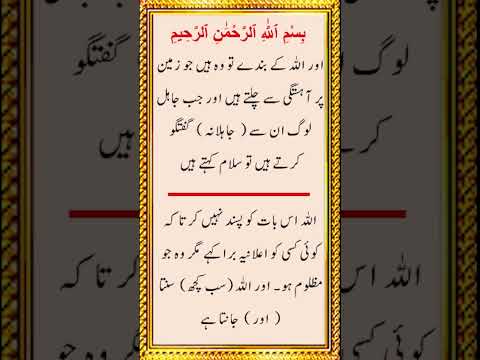 بِسْمِ ٱللَّٰهِ ٱلرَّحْمَٰنِ ٱلرَّحِيمِ
اور اللہ کے بندے تو وہ ہیں جو زمین
پر آہستگی سے چلتے ہیں اور جب جاہل
لوگ ان سے ( جاہلانہ ) گفتگو
کرتے ہیں تو سلام کہتے ہیں
اللہ اس بات کو پسند نہیں کرتا کہ
کوئی کسی کو اعلانیہ برا کہے مگر وہ جو
مظلوم ہو۔ اور اللہ (سب کچھ) سنتا
( اور ) جانتا ہے